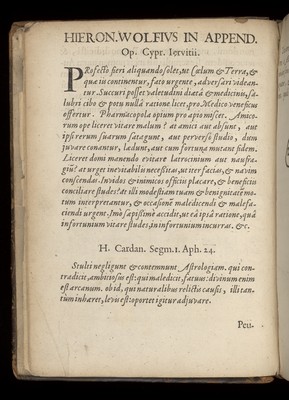 HIERON. WOLFIVS IN APPEND.
Op. Cypr. Iervitii.
PRofectò fieri aliquando solet, ut Cœlum & Terra, &
quæ iis continentur, fato urgente, adversari videan-
tur. Succurri posset valetudini diæta & medicina, sa-
lubri cibo & potu nullâ ratione licet, pro Medico veneficus
offertur. Pharmacopola opium pro apio miscet. Amico-
rum ope liceret vitare malum? at amici aut absunt, aut
ipsi rerum suarum satagunt, aut perverso studio, dum
juvare conantur, lædunt, aut cum fortuna mutant fidem.
Liceret domi manendo evitare latrocinium aut naufra-
giū? at urget inevitabilis necessitas, ut iter facias, & navim
conscendas. Invidos & inimicos officiis placare, & beneficiis
conciliare studes? At illi modestiam tuam & benignitatē me-
tum interpretantur, & occasionē maledicendi & malefa-
ciendi urgent. Imò sæpissimè accidit, ut eâ ipsâ ratione, quâ
infortunium vitare studes, in infortunium incurras. &c.
H. Cardan. Segm. 1. Aph. 24.
Stulti negligunt & contemnunt Astrologiam. qui con-
tradicit, ambitiosus est: qui maledicit, fatuus: divinum enim
est arcanum. ob id, qui naturalibus relictis causis, illi tan-
tùm inhæret, levis est: oportet igitur adjuvare.
Peu-